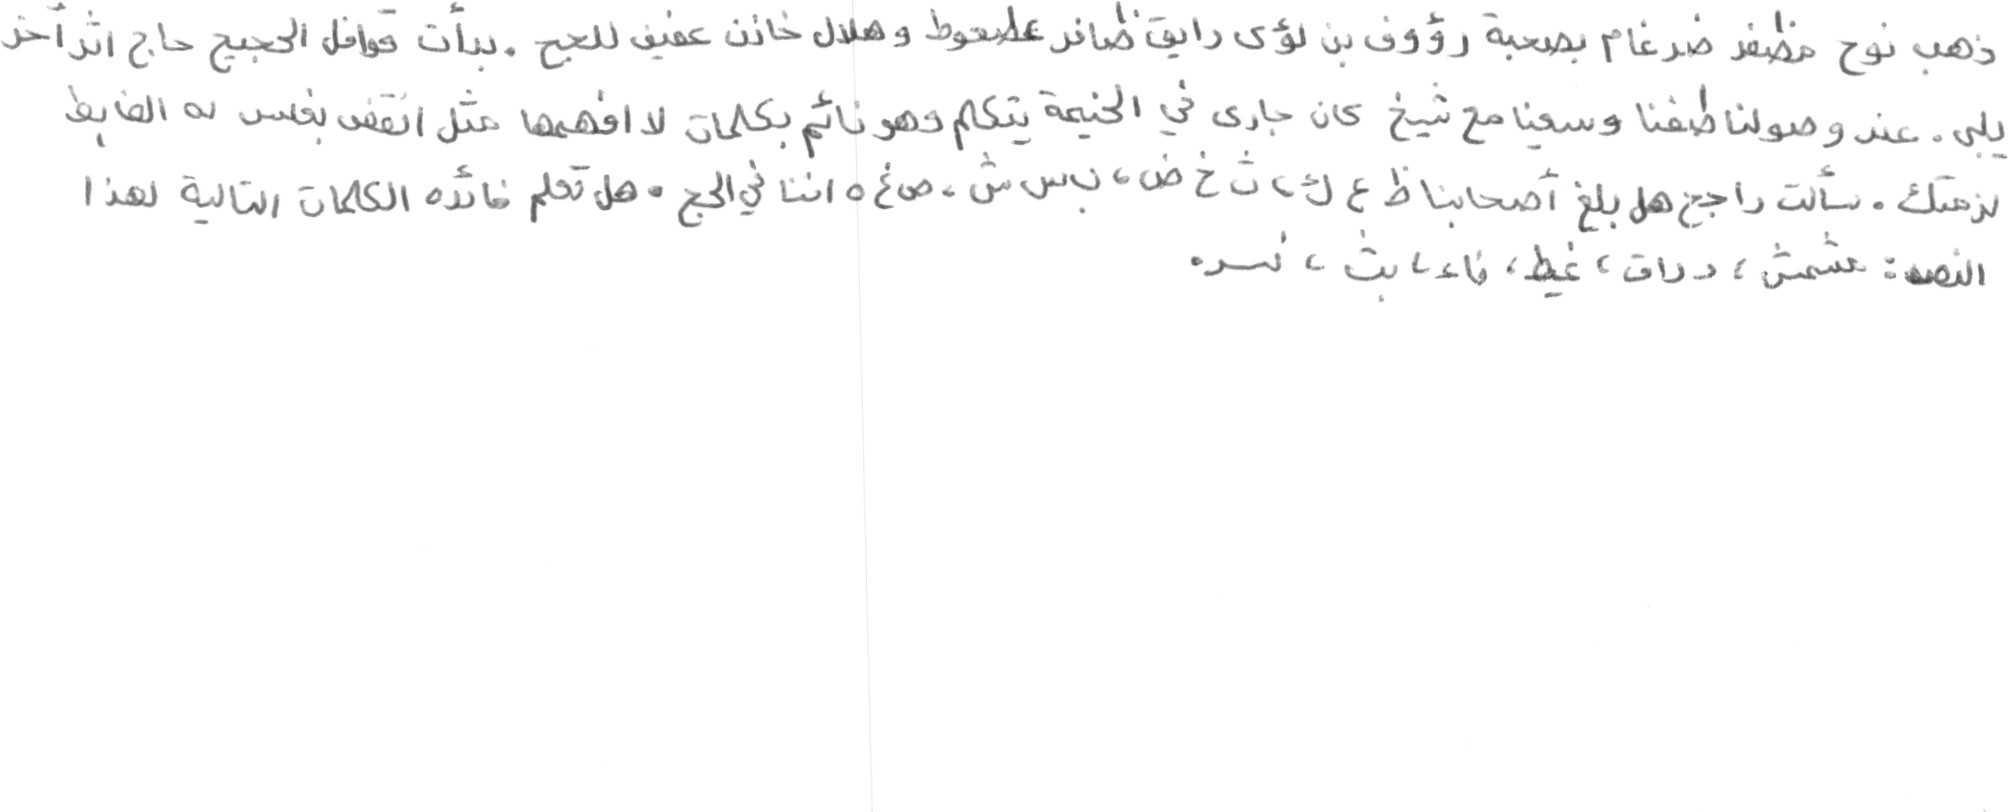 ذهب نوح مظفر ضرغام بصحبة رؤوف بن لؤى رايق ظافر عضعوط وهلال خازن عفيف للحج . بدأت قوافل الحجيج حاج اثر آخر
يلبى . عند وصولنا طفنا وسعينا مع شيخ كان جارى في الخيمة يتكلم وهو نائم بكلمات لا افهمها مثل انقض بغلس له الضابط
لزمتك . سألت راجح هل بلغ أصحابنا ظ ع ك ، ث خ ض ، ب س ش ، ص غ ه اننا في الحج . هل تعلم فائده الكلمات التالية لهذا
النص : مشمش ، دراق ، غيظ ، فاء ، بث ، نسر .